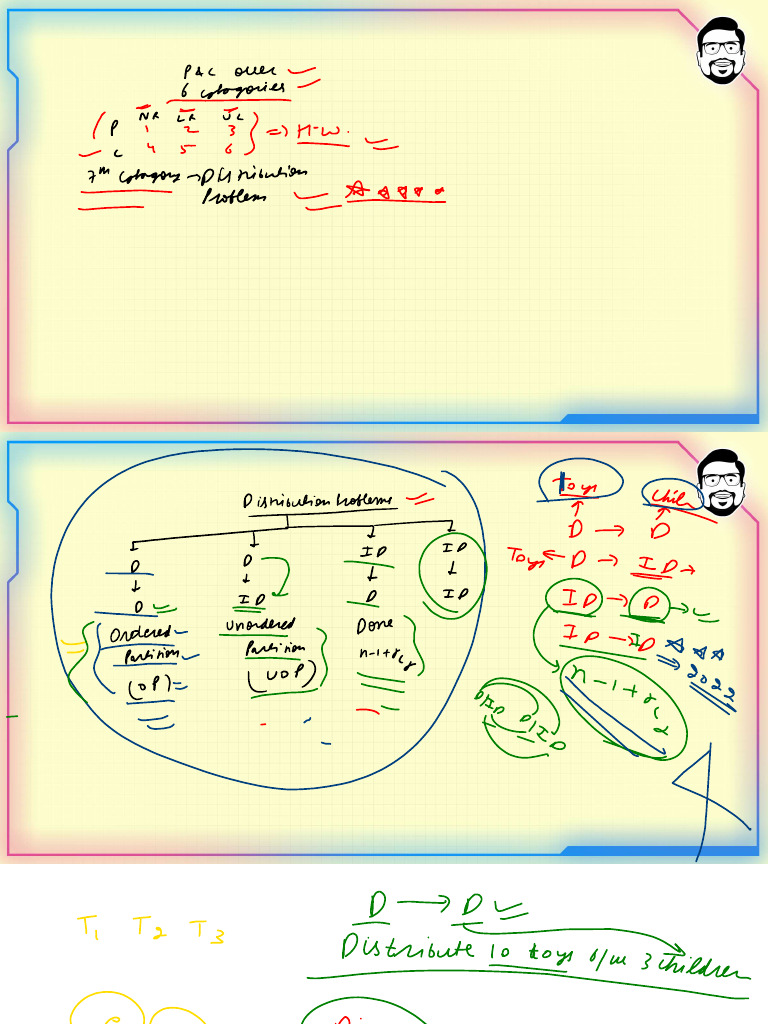 P&C over
6 categories
NR LR UL
P 1 2 3 => H.W.
C 4 5 6
7th category → Distribution
Problems
Distribution Problems
D D ID ID
D ID D ID
Ordered Unordered Done
Partition Partition n-1+rCr
(OP) (UOP)
Toys Chil
D → D
Toys ← D → ID →
ID → D →
ID → ID
2022
n-1+rCr
D/ID D/ID
4
D → D
T1 T2 T3
Distribute 10 toys b/w 3 children